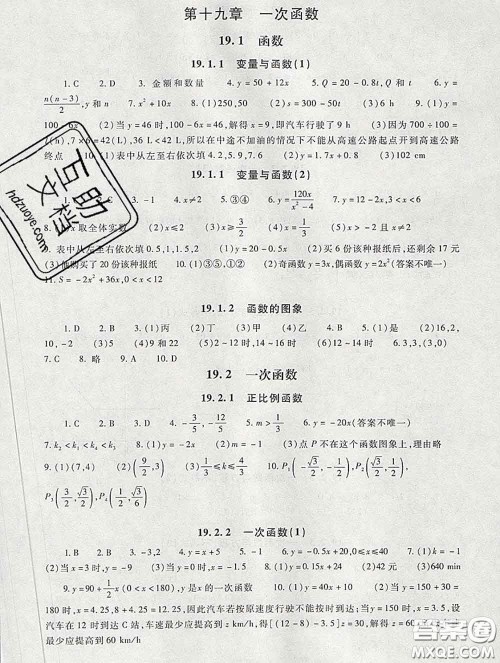 第十九章 一次函数
19.1 函数
19.1.1 变量与函数(1)
1. C 2. D 3. 金额和数量 4. y=50+12x 5. Q=20-8t, Q 和 t 6. y=
n(n-3)/2, y 和 n 7. x²+10x 8. (1)250,50 (2)s=300-50t (3)6 h 9. (1)y=
100-6x (2)当 y=46 时,100-6x=46,解得 x=9,即汽车行驶了 9 h (3)因为 700÷100=
7(h),7×6=42(L),36 L<42 L,所以在中途不加油的情况下不能从高速公路起点开到高速公路
终点 10. (1)表中从左至右依次填 4.2,5.9,7.6 (2)y=1.7x+0.8 (3)102 cm
19.1.1 变量与函数(2)
1. 3. B 4. x≠2 5. ③④ 6. y=120x/ 7. y=12-2x,3<x<6
8. x取全体实数 (2)x≤2 (3)x≥ (4)x≥-5 且 x≠2
9. 表中从左至右依次填 0.5,1,1.5,2 (2)买 6 份该种报纸后,还剩余 17 元
(3)他购买了 20 份该种报纸 10. (1)③⑤,①② (2)奇函数 y=3x,偶函数 y=2x²(答案不唯一)
11. S=-2x²+36x,0<x<12
19.1.2 函数的图象
1. D 2. B 3. (1)丙 (2)丁 (3)甲 (4)乙 4. D 5. (1)x (2)16,2,
10,-1 (3)9 (4)5,12 (5)2~12 时,14~16 时 (6)12~14 时 6. 3,3,(3,3)
7. C 8. 略 9. A 10. D
19.2 一次函数
19.2.1 正比例函数
1. D 2. B 3. C 4. -3/5, -12/5 5. m>1/3 6. y=-20x(答案不唯一)
7. k₂<k₁<k₄<k₃ 8. (1)y=-2x (2)m=-1 (3)点 P 不在这个函数图象上,理由略
9. (1)(7,4) (2)(9/2,3) (3)≤k≤4 10. P₁(-√3/2,-1/2), P₂
P₃(3/2,√3/2), P₄(1/2,√3/6)
19.2.2 一次函数(1)
1. B 2. B 3. -2,-3 4. y=x+5 5. y=40-5x,0≤x≤8 6. (1)0≤x≤20
(2)当 x<73 时,y=0.5x;当 x≥ 时,y= (3)640 min
7. y=90+1/2x, y 是 x 的一次函数 8. (1)y=40x+10 (2)当 y=
180 时,x=4.25,8+4.25=12.25,因此汽车若按原速度行驶不能按时到达;当 y=150 时,x=3.5,设
汽车在 12 时到达 C 站,车速最少应提高到 z km/h,则[(12-8)-3.5]z=30,解得 z=60,即车速
最少应提高到 60 km/h
互助文档
hdzuoye.com
答案圈
MXQE.COM